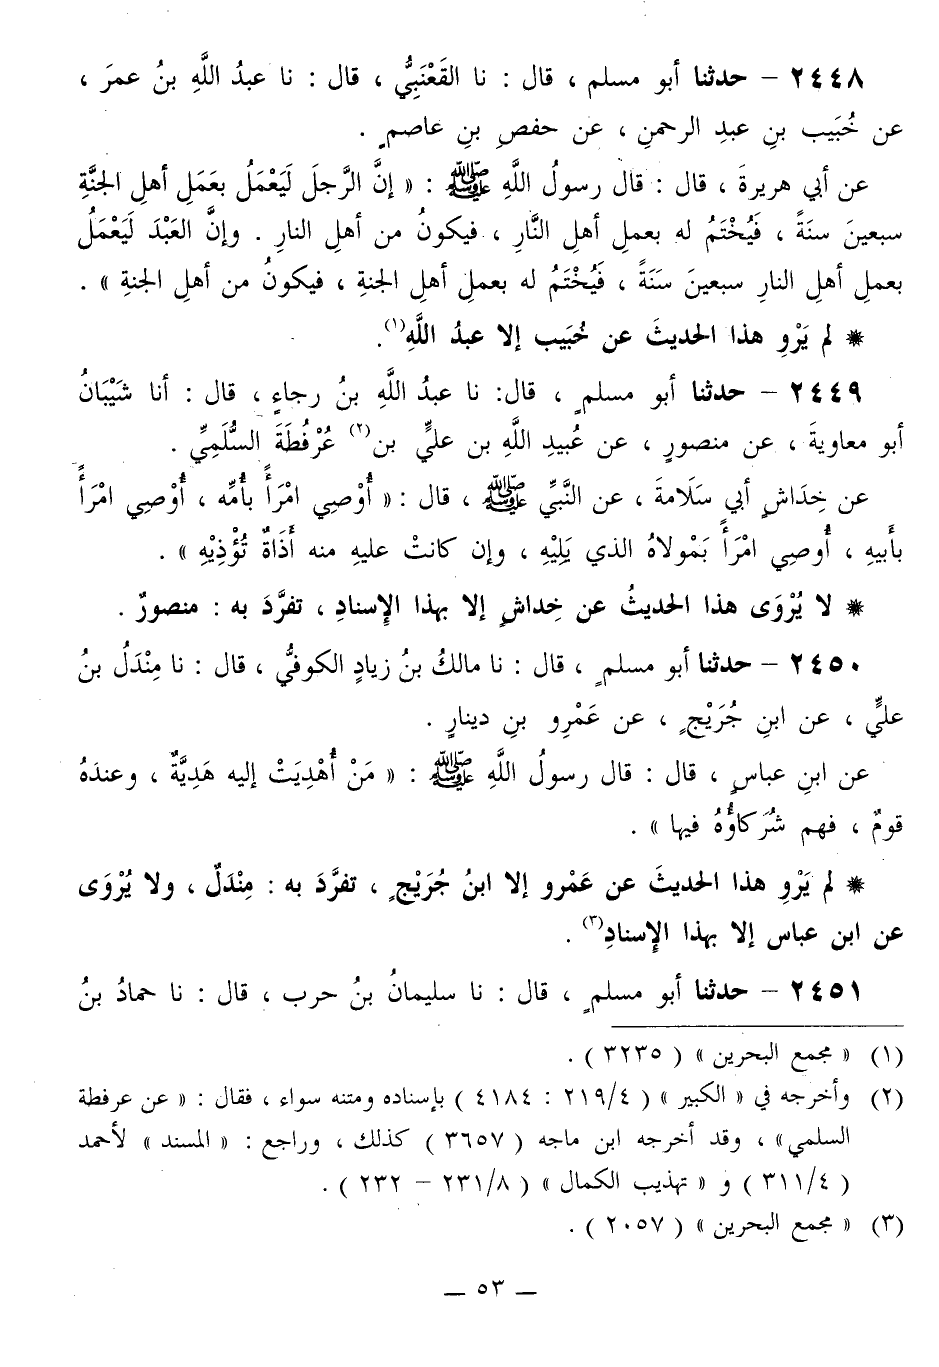 ٢٤٤٨ – حدثنا أبو مسلم ، قال : نا القَعْنَبِيُّ ، قال : نا عبدُ اللَّهِ بنُ عمرَ ،
عن خُبَيب بنِ عبدِ الرحمنِ ، عن حفصِ بنِ عاصمٍ .
عن أبي هريرةَ ، قال : قال رسولُ اللَّهِ ﷺ : « إنَّ الرَّجلَ لَيَعْمَلُ بعَمَلِ أهلِ الجنَّةِ
سبعينَ سنَةً ، فَيُخْتَمُ له بعملِ أهلِ النَّارِ ، فيكونُ من أهلِ النارِ . وإنَّ العَبْدَ لَيَعْمَلُ
بعملِ أهلِ النارِ سبعينَ سَنَةً ، فَيُخْتَمُ له بعملِ أهلِ الجنةِ ، فيكونُ من أهلِ الجنةِ » .
* لم يَرْوِ هذا الحديثَ عن خُبَيب إلا عبدُ اللَّهِ(١).
٢٤٤٩ – حدثنا أبو مسلمٍ ، قال: نا عبدُ اللَّهِ بنُ رجاءٍ ، قال : أنا شَيْبَانُ
أبو معاويةَ ، عن منصورٍ ، عن عُبيدِ اللَّهِ بن عليٍّ بن(٢) عُرْفُطَةَ السُّلَمِيِّ .
عن خِدَاشٍ أبي سَلَامةَ ، عن النَّبيِّ ﷺ ، قال : « أُوْصِي امْرَأً بأُمِّه ، أُوْصِي امْرَأً
بأَبيهِ ، أُوصِي امْرَأً بمَوْلاهُ الذي يَلِيْهِ ، وإن كانتْ عليهِ منه أَذَاةٌ تُؤْذِيْهِ » .
* لا يُرْوَى هذا الحديثُ عن خِداشٍ إلا بهذا الإِسنادِ ، تفرَّدَ به : منصورٌ .
٢٤٥٠ – حدثنا أبو مسلمٍ ، قال : نا مالكُ بنُ زيادٍ الكوفيُّ ، قال : نا مِنْدَلُ بنُ
عليٍّ ، عن ابنِ جُرَيْجٍ ، عن عَمْرِو بنِ دينارٍ .
عن ابنِ عباسٍ ، قال : قال رسولُ اللَّهِ ﷺ : « مَنْ أُهْدِيَتْ إليه هَدِيَّةٌ ، وعندَهُ
قومٌ ، فهم شُرَكاؤُهُ فيها » .
* لم يَرْوِ هذا الحديثَ عن عَمْرو إلا ابنُ جُرَيْجٍ ، تفرَّدَ به : مِنْدَلٌ ، ولا يُرْوَى
عن ابن عباس إلا بهذا الإِسنادِ(٣) .
٢٤٥١ – حدثنا أبو مسلمٍ ، قال : نا سليمانُ بنُ حرب ، قال : نا حمادُ بنُ
(١) « مجمع البحرين » ( ٣٢٣٥ ) .
(٢) وأخرجه في « الكبير » ( ٢١٩/٤ : ٤١٨٤ ) بإسناده ومتنه سواء ، فقال : « عن عرفطة
السلمي» ، وقد أخرجه ابن ماجه ( ٣٦٥٧ ) كذلك ، وراجع : « المسند » لأحمد
( ٣١١/٤ ) و « تهذيب الكمال » ( ٢٣١/٨ – ٢٣٢ ) .
(٣) « مجمع البحرين » ( ٢٠٥٧ ) .
— ٥٣ —